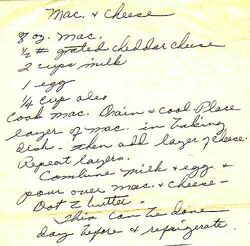 Mac. & Cheese
8 oz. mac.
1/2 # grated cheddar cheese
2 cups milk
1 egg
1/4 cup oleo
Cook mac. Drain & cool Place
layer of mac. in baking
dish - then add layer of cheese.
Repeat layers.
Combine milk & egg &
pour over mac. & cheese -
Dot c butter.
This can be done
day before & refrigerate.